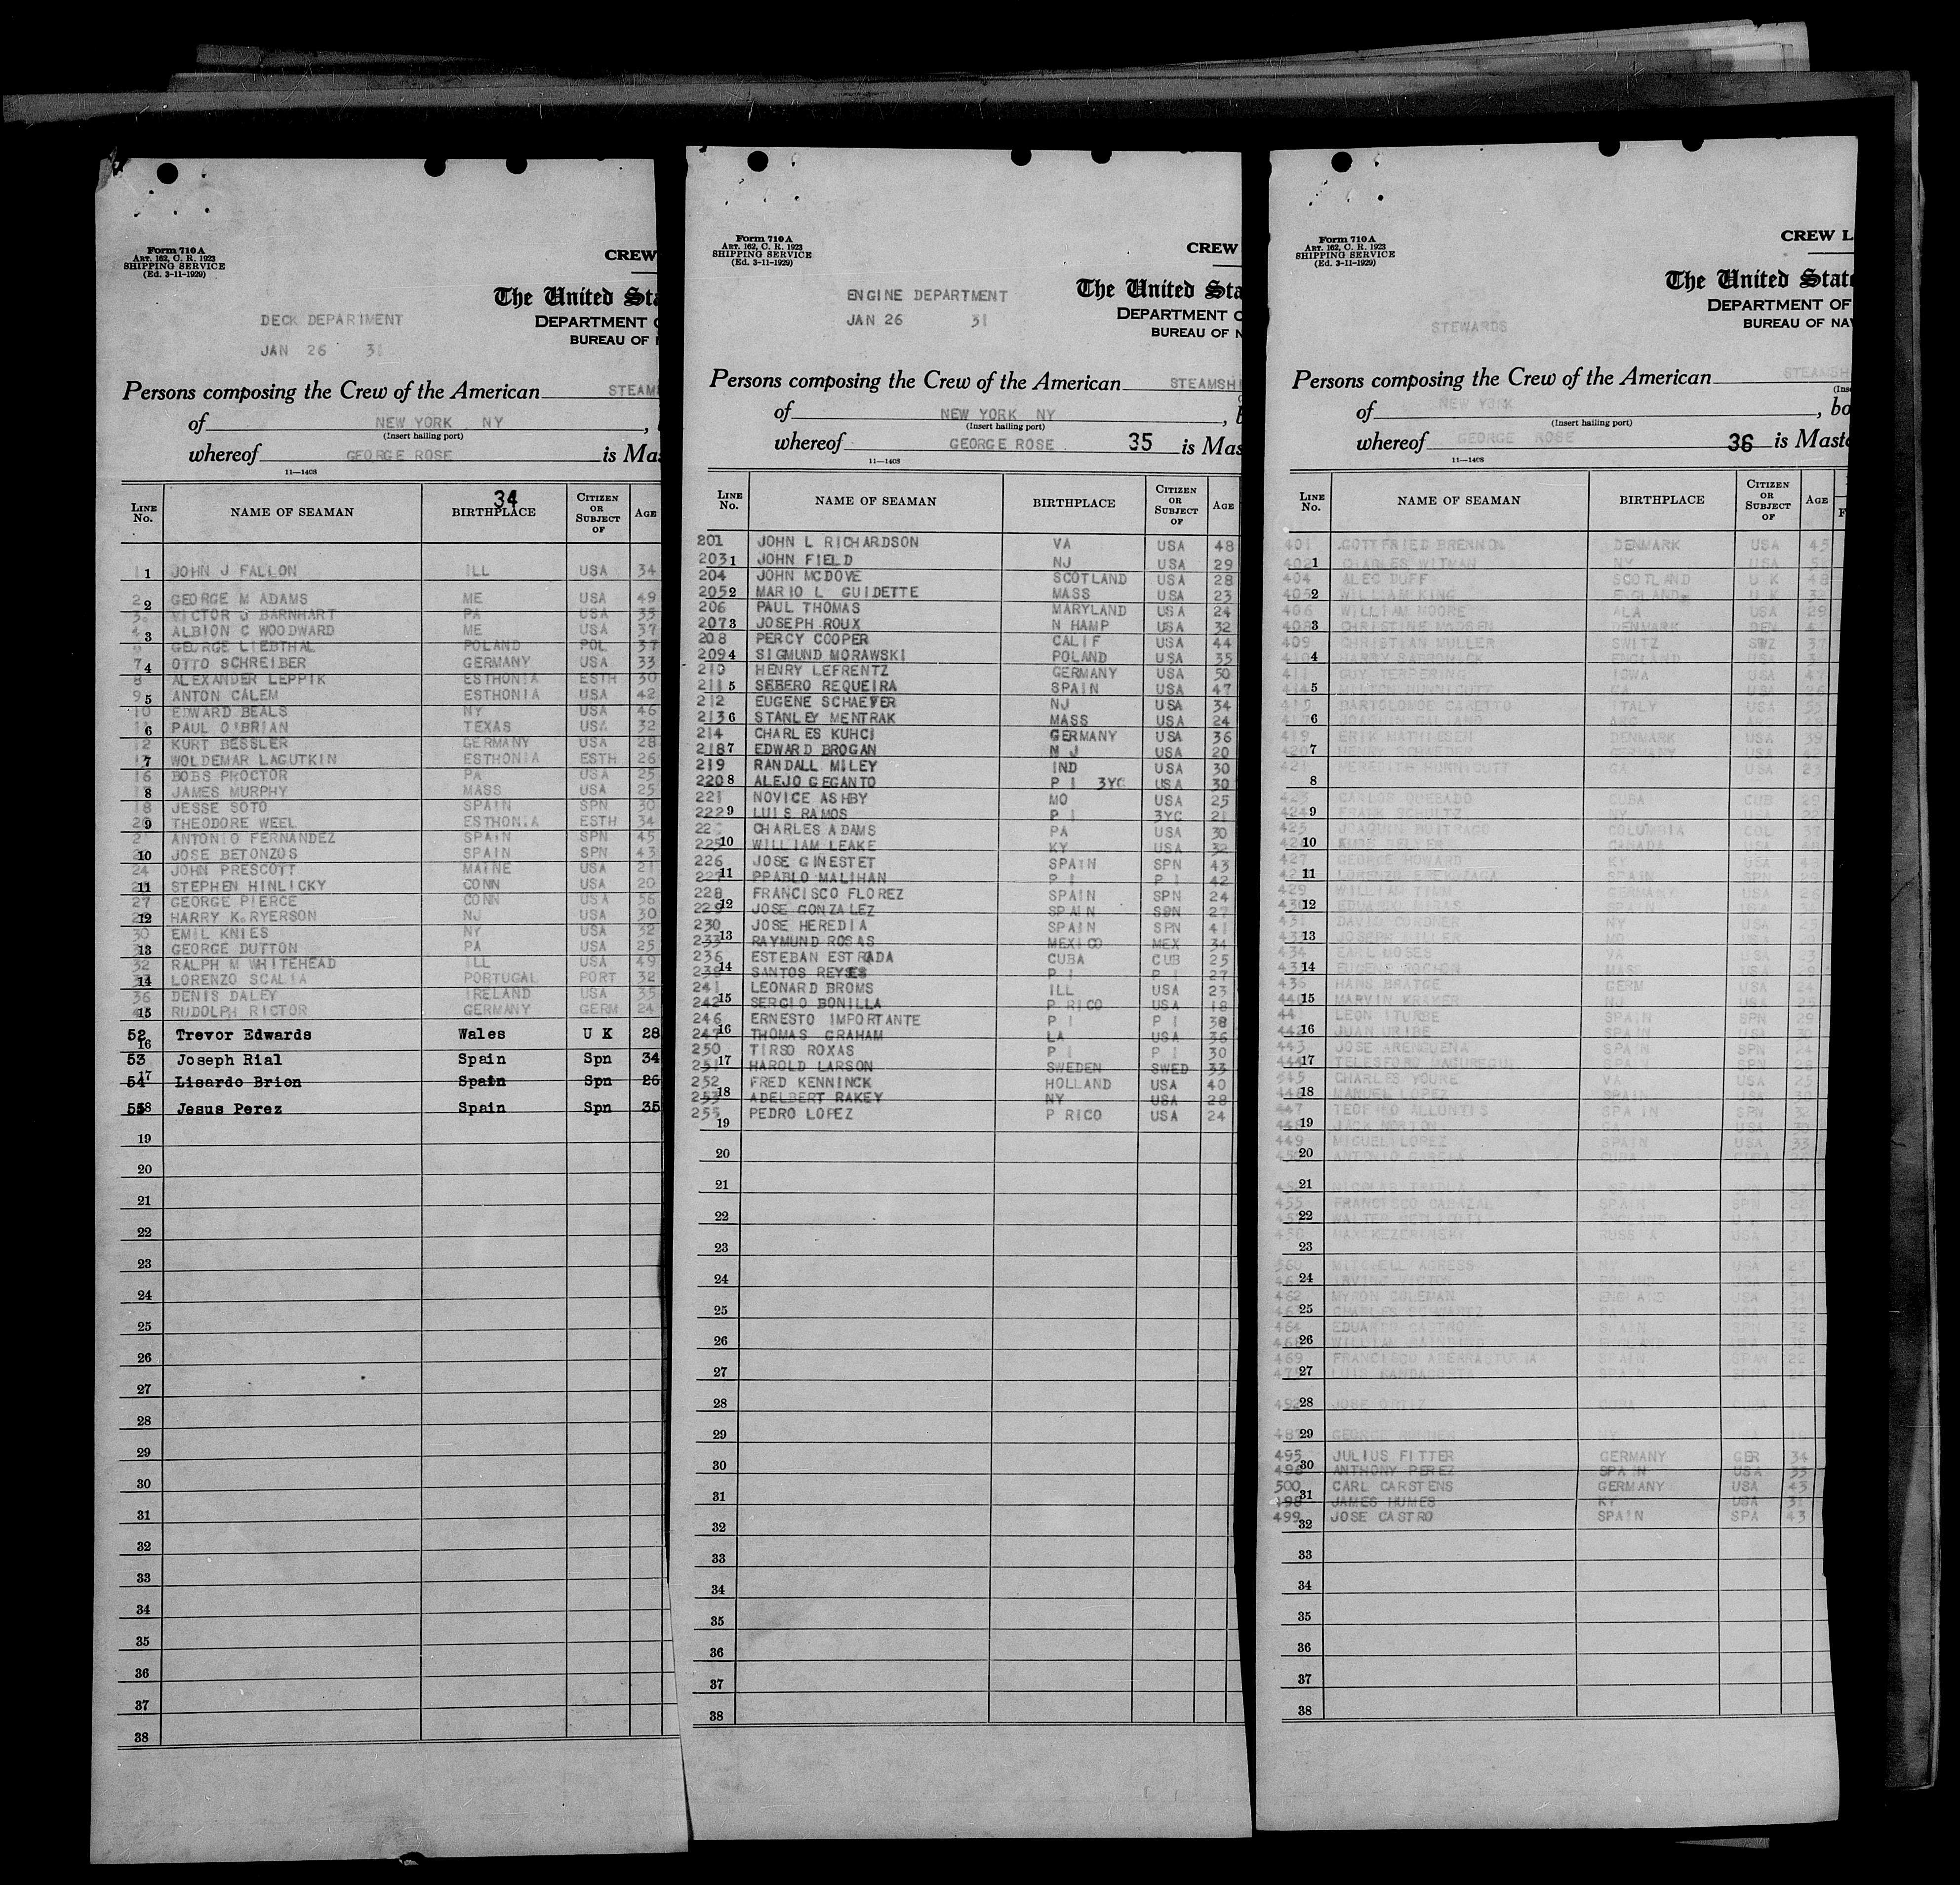 Form 710A
ART. 162, C. R. 1923
SHIPPING SERVICE
(Ed. 3-11-1929)
CREW
The United Sta
DEPARTMENT O
BUREAU OF
DECK DEPARTMENT
JAN 26 31
Persons composing the Crew of the American STEAMS
of NEW YORK NY ,
(Insert hailing port)
whereof GEORGE ROSE is Mas
11—1408
34
LINE No. NAME OF SEAMAN BIRTHPLACE CITIZEN OR SUBJECT OF AGE
1 JOHN J FALLON ILL USA 34
2 GEORGE M ADAMS ME USA 49
3 VICTOR J BARNHART PA USA 35
4 ALBION C WOODWARD ME USA 37
GEORGE LIEBTHAL POLAND POL 37
7 OTTO SCHREIBER GERMANY USA 33
8 ALEXANDER LEPPIK ESTHONIA ESTH 30
9 ANTON CALEM ESTHONIA USA 42
10 EDWARD BEALS NY USA 46
11 PAUL O'BRIAN TEXAS USA 32
12 KURT BESSLER GERMANY USA 28
WOLDEMAR LAGUTKIN ESTHONIA ESTH 26
16 BOBS PROCTOR PA USA 25
JAMES MURPHY MASS USA 25
18 JESSE SOTO SPAIN SPN 30
THEODORE WEEL ESTHONIA ESTH 34
ANTONIO FERNANDEZ SPAIN SPN 45
JOSE BETONZOS SPAIN SPN 43
24 JOHN PRESCOTT MAINE USA 21
STEPHEN HINLICKY CONN USA 20
27 GEORGE PIERCE CONN USA 56
HARRY K RYERSON NJ USA 30
30 EMIL KNIES NY USA 32
GEORGE DUTTON PA USA 25
32 RALPH M WHITEHEAD ILL USA 49
LORENZO SCALIA PORTUGAL PORT 32
36 DENIS DALEY IRELAND USA 35
RUDOLPH RICTOR GERMANY GERM 24
52 Trevor Edwards Wales U K 28
53 Joseph Rial Spain Spn 34
54 Lisardo Brion Spain Spn 26
55 Jesus Perez Spain Spn 35
19
20
21
22
23
24
25
26
27
28
29
30
31
32
33
34
35
36
37
38
Form 710A
ART. 162, C. R. 1923
SHIPPING SERVICE
(Ed. 3-11-1929)
CREW
The United Sta
DEPARTMENT O
BUREAU OF N
ENGINE DEPARTMENT
JAN 26 31
Persons composing the Crew of the American STEAMSHI
of NEW YORK NY ,
(Insert hailing port)
whereof GEORGE ROSE 35 is Mas
11—1408
LINE No. NAME OF SEAMAN BIRTHPLACE CITIZEN OR SUBJECT OF AGE
201 JOHN L RICHARDSON VA USA 48
203 1 JOHN FIELD NJ USA 29
204 JOHN MCDOVE SCOTLAND USA 28
205 2 MARIO L GUIDETTE MASS USA 23
206 PAUL THOMAS MARYLAND USA 24
207 3 JOSEPH ROUX N HAMP USA 32
208 PERCY COOPER CALIF USA 44
209 4 SIGMUND MORAWSKI POLAND USA 35
210 HENRY LEFRENTZ GERMANY USA 50
211 5 SEBERO REQUEIRA SPAIN USA 47
212 EUGENE SCHAEFER NJ USA 34
213 6 STANLEY MENTRAK MASS USA 24
214 CHARLES KUHCI GERMANY USA 36
218 7 EDWARD BROGAN N J USA 20
219 RANDALL MILEY IND USA 30
220 8 ALEJO GEGANTO P I 3YC USA 30
221 NOVICE ASHBY MO USA 25
222 9 LUIS RAMOS P I 3YC 21
CHARLES ADAMS PA USA 30
225 10 WILLIAM LEAKE KY USA 32
226 JOSE GINESTET SPAIN SPN 43
227 11 PPABLO MALIHAN P I P I 42
228 FRANCISCO FLOREZ SPAIN SPN 24
229 12 JOSE GONZALEZ SPAIN SPN 27
230 JOSE HEREDIA SPAIN SPN 41
233 13 RAYMUND ROSAS MEXICO MEX 34
236 ESTEBAN ESTRADA CUBA CUB 25
14 SANTOS REYES P I P I 27
241 LEONARD BROMS ILL USA 23
242 15 SERGIO BONILLA P RICO USA 18
246 ERNESTO IMPORTANTE P I P I 38
247 16 THOMAS GRAHAM LA USA 36
250 TIRSO ROXAS P I P I 30
251 17 HAROLD LARSON SWEDEN SWED 33
252 FRED KENNINCK HOLLAND USA 40
253 18 ADELBERT RAKEY NY USA 28
255 PEDRO LOPEZ P RICO USA 24
19
20
21
22
23
24
25
26
27
28
29
30
31
32
33
34
35
36
37
38
Form 710A
ART. 162, C. R. 1923
SHIPPING SERVICE
(Ed. 3-11-1929)
CREW L
The United State
DEPARTMENT OF
BUREAU OF NAV
STEWARDS
Persons composing the Crew of the American STEAMSH
of NEW YORK , bo
(Insert hailing port)
whereof GEORGE ROSE 36 is Maste
11—1408
LINE No. NAME OF SEAMAN BIRTHPLACE CITIZEN OR SUBJECT OF AGE
401 GOTTFRIED BRENNON DENMARK USA 45
402 1 CHARLES WITMAN NY USA
404 ALEC DUFF SCOTLAND U K 48
405 2 WILLIAM KING ENGLAND U K 32
406 WILLIAM MOORE ALA USA 29
408 3 CHRISTINE MADSEN DENMARK DEN
409 CHRISTIAN MULLER SWITZ SWZ 37
410 4 HARRY ENGLAND USA
411 GUY TERPERING IOWA USA 47
5
415 BARTOLOMOE CARETTO ITALY USA 55
6
419 ERIK MATHIESEN DENMARK USA 39
420 7 HENRY SCHWEDER GERMANY USA
421 MEREDITH HUNNICUTT GA USA 23
8
CARLOS QUESADO CUBA CUB 29
424 9 FRANK SCHULTZ NY USA
425 JOAQUIN BUITRAGO COLUMBIA COL
10 CANADA USA
427 GEORGE HOWARD KY USA 48
11 LORENZO SPAIN SPN 29
429 WILLIAM TIMM GERMANY USA 26
430 12 EDVARDO MIRAS SPAIN
431 DAVID CORDNER NY USA 25
13 JOSEPH MILLER
434 EARL MOSES VA USA 23
14 EUGENE MASS USA 29
436 HANS BRATGE GERM USA 24
440 15 MARVIN KRAMER NJ USA
LEON ITURBE SPAIN SPN 29
442 16 JUAN URIBE SPAIN USA 30
443 JOSE ARENGUENA SPAIN SPN
444 17 TELESFORO SPAIN
CHARLES YOURE VA USA 25
18 MANUEL LOPEZ SPAIN USA
447 TEOFILO ALLONTIS SPAIN SPN 32
19 JACK NORTON
449 MIGUEL LOPEZ SPAIN USA 33
20 ANTONIO GARCIA CUBA
21 NICOLAS SPAIN
455 FRANCISCO CABAZAL SPAIN SPN
22 WALTER ENGLAND
MAX RUSSIA
23
MITCHELL AGRESS NY
24
462 MYRON COLEMAN ENGLAND USA
25 CHARLES SCHWARTZ
464 EDUARDO CASTRO SPAIN SPN 32
26 WILLIAM
469 FRANCISCO ABERRASTURIA SPAIN 22
27 LUIS SPAIN
28 JOSE CUBA
29 GEORGE
495 JULIUS FITTER GERMANY GER 34
496 30 ANTHONY PEREZ SPAIN USA 33
500 CARL CARSTENS GERMANY USA 43
498 31 JAMES HUMES KY USA 31
499 JOSE CASTRO SPAIN SPA 43
32
33
34
35
36
37
38